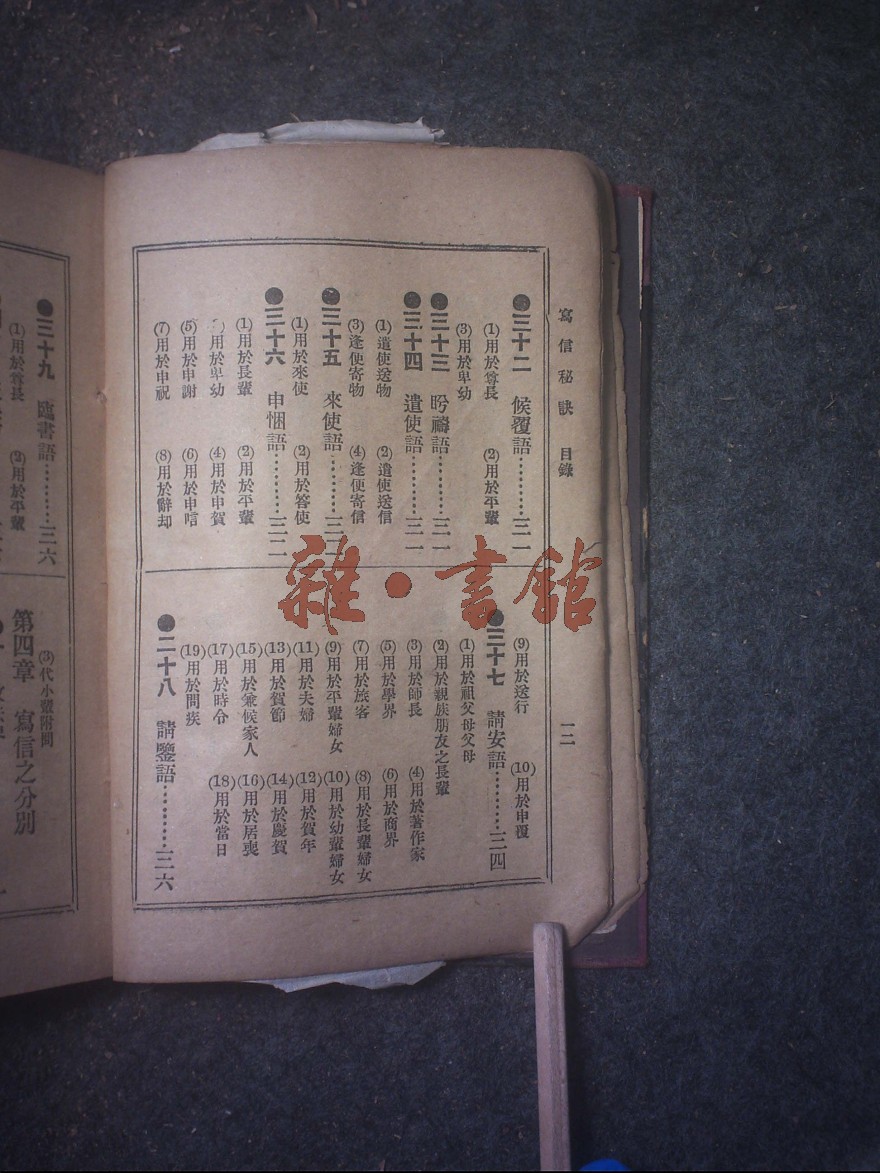 寫信秘訣 目錄 一二
●三十二 候覆語⋯⋯⋯三一
(1)用於尊長 (2)用於平輩
(3)用於卑幼
●三十三 盻禱語⋯⋯⋯三一
●三十四 遣使語⋯⋯⋯三一
(1)遣使送物 (2)遣使送信
(3)逢便寄物 (4)逢便寄信
●三十五 來使語⋯⋯⋯三二
(1)用於來使 (2)用於答使
●三十六 申悃語⋯⋯⋯三二
(1)用於長輩 (2)用於平輩
用於卑幼 (4)用於申賀
(5)用於申謝 (6)用於申唁
(7)用於申祝 (8)用於辭却
(9)用於送行 (10)用於申覆
●三十七 請安語⋯⋯⋯三四
(1)用於祖父母父母
(2)用於親族朋友之長輩
(3)用於師長 (4)用於著作家
(5)用於學界 (6)用於商界
(7)用於旅客 (8)用於長輩婦女
(9)用於平輩婦女 (10)用於幼輩婦女
(11)用於夫婦 (12)用於賀年
(13)用於賀節 (14)用於慶賀
(15)用於兼候家人 (16)用於居喪
(17)用於時令 (18)用於當日
(19)用於問疾
●二十八 請鑒語⋯⋯⋯三六
●三十九 臨書語⋯⋯⋯三六
(1)用於尊長 (2)用於平輩
(3)代小輩附問
第四章 寫信之分別
雜·書館